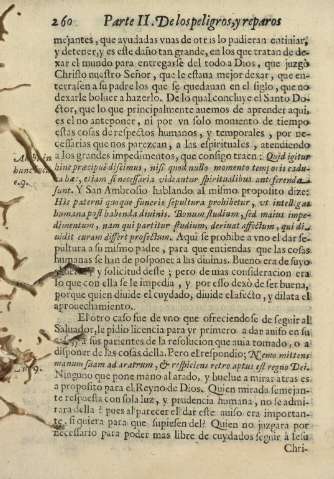 260 Parte II. De los peligros, y reparos
mejantes, que ayudadas vnas de otras lo pudieran continuar,
y detener, y es este daño tan grande, en los que tratan de de-
xar el mundo para entregarse del todo a Dios, que juzgò
Christo nuestro Señor, que le estaua mejor dexar, que en-
terrassen a su padre los que se quedauan en el siglo, que no
dexarle boluer a hazerlo. De lo qual concluye el Santo Do-
ctor, que lo que principalmente auemos de aprender aqui,
es el no anteponer, ni por vn solo momento de tiempo
estas cosas de respectos humanos, y temporales, por ne-
cessarias que nos parezcan, a las espirituales, atendiendo
a los grandes impedimentos, que consigo traen: Quid igitur
hinc præcipuè discimus, nisi quod nullo momento temporis
etiam si necessaria videantur spiritualibus anteferenda
sunt. Y San Ambrosio hablando al mismo proposito dize:
His paterni quoque funeris sepultura prohibetur, vt intelligas
humana post habenda diuinis. Bonum studium, sed maius impe-
dimentum, nam qui partitur studium, deriuat affectum, qui di-
uidit curam differt profectum. Aqui le prohibe a vno el dar se-
pultura a su mismo padre, para que entiendas que las cosas
humanas se han de posponer a las diuinas. Bueno era de suyo
y solicitud deste; pero de mas consideracion era
lo que con ella se le impedia, y por esso dexò de ser buena,
porque quien diuide el cuydado, diuide el afecto, y dilata el
aprouechamiento.
El otro caso fue de vno que ofreciendose de seguir al
Saluador, le pidio licencia para yr primero a dar auiso en su
a sus parientes de la resolucion que auia tomado, o a
disponer de las cosas della. Pero el respondio; Nemo mittens
manum suam ad aratrum, & respiciens retro aptus est regno Dei.
Ninguno que pone mano al arado, y huelue a mirar atras es
a proposito para el Reyno de Dios. Quien mirada semejan-
te respuesta con sola luz, y prudencia humana, no se admi-
rara della? pues al parecer el dar este auiso era importan-
te, si quiera para que supiessen del? Quien no juzgara por
necessario para poder mas libre de cuydados seguir à Iesu
Chri-